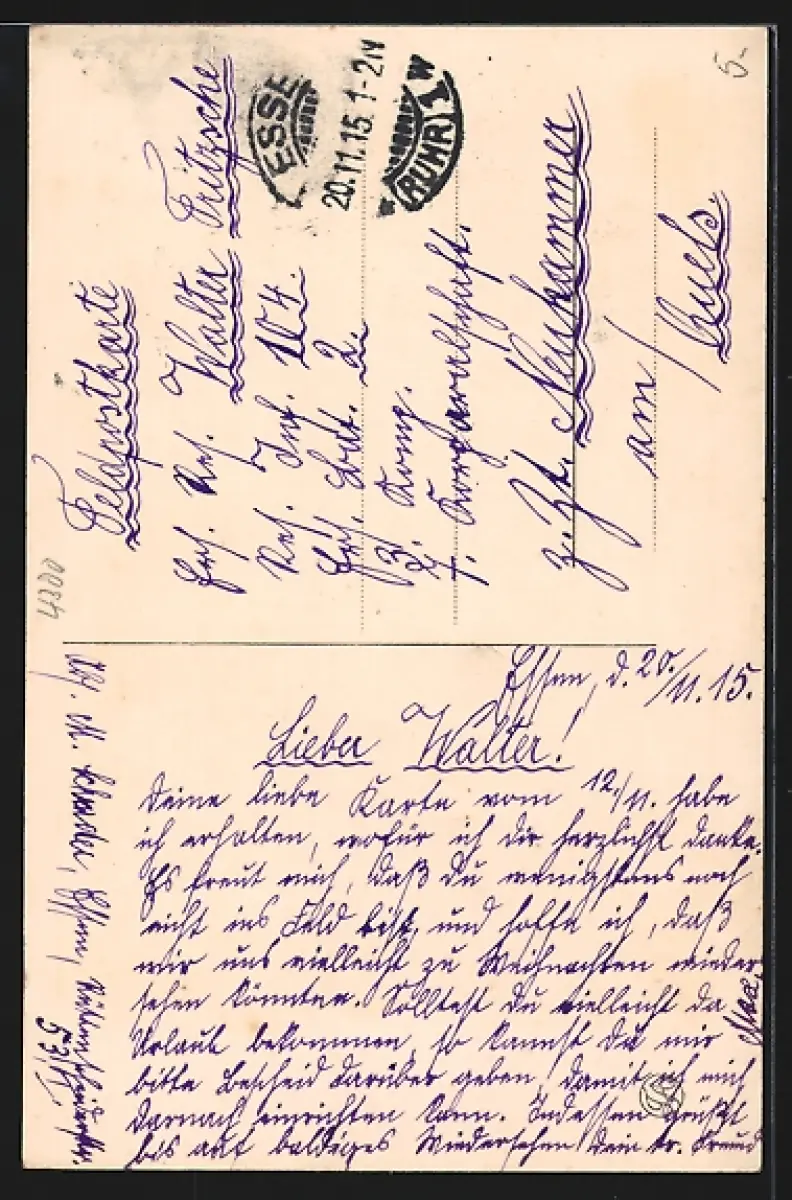 5.-
4300
ESSE
20.11.15. 1-2N
(RUHR) 1 W
Feldpostkarte
Ers. Res. Walter Fritzsche
Res. Inf. 104.
Ers. Bat. 2.
3. Komp.
7. Korporalschaft.
z. Zt. Neuhammer
am / Queis.
Essen, d. 20./11. 15.
Lieber Walter!
Deine liebe Karte vom 12./11. habe
ich erhalten, wofür ich dir herzlichst danke.
Es freut mich, daß Du wenigstens noch
nicht ins Feld bist, und hoffe ich, daß
wir uns vielleicht zu Weihnachten wieder-
sehen könnten. Solltest Du vielleicht da
Urlaub bekommen, so kannst Du mir
bitte Bescheid darüber geben, damit ich mich
darnach einrichten kann. Indessen grüßt
bis auf baldiges Wiedersehen Dein tr. Freund
Max.
Abs. M.
Essen,
53/II